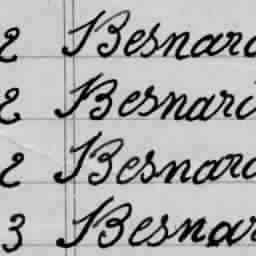 2 Besnard
2 Besnard
2 Besnard
3 Besnar